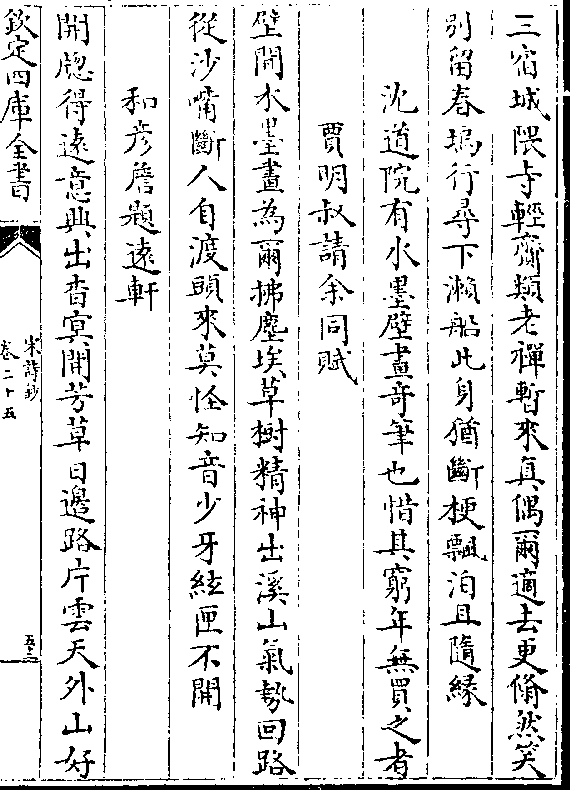 三宿城隈寺輕齋類老禪暫來真偶爾適去更翛然笑
别留春塢行尋下瀨船此身猶斷梗飄泊且隨緣
沈道院有水墨壁畫竒筆也惜其窮年無買之者
賈明叔請余同賦
壁間水墨畫為爾拂塵埃草樹精神出溪山氣勢回路
從沙嘴斷人自渡頭來莫怪知音少牙絃匣不開
和彦詹題遠軒
開牕得遠意興出杳冥間芳草日邊路片雲天外山好
欽定四庫全書
宋詩鈔
卷二十五
五三